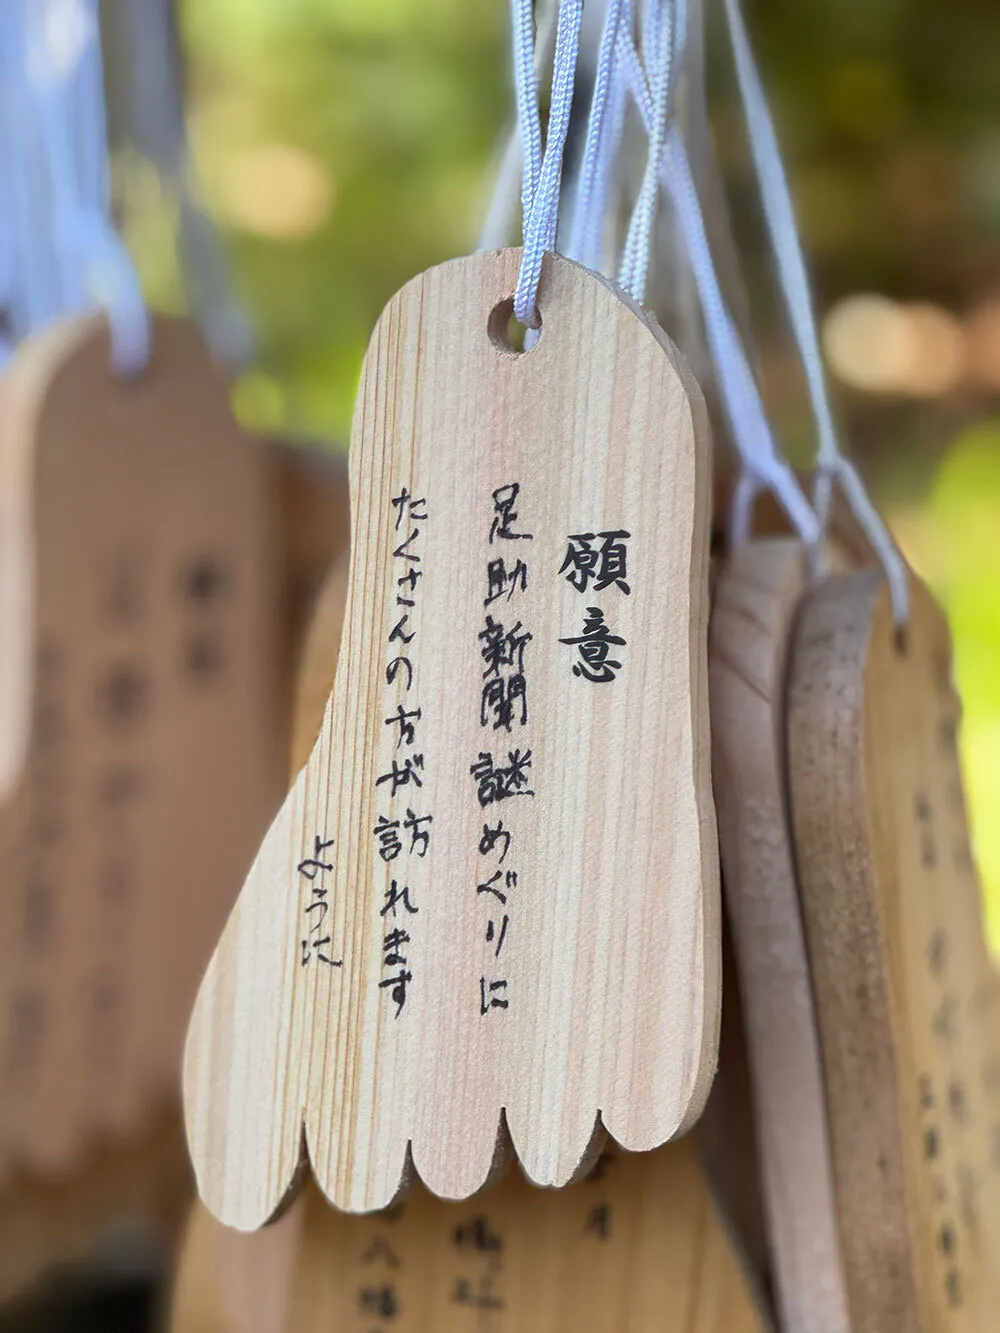 願意
足助新聞謎めぐりに
たくさんの方が訪れます
ように